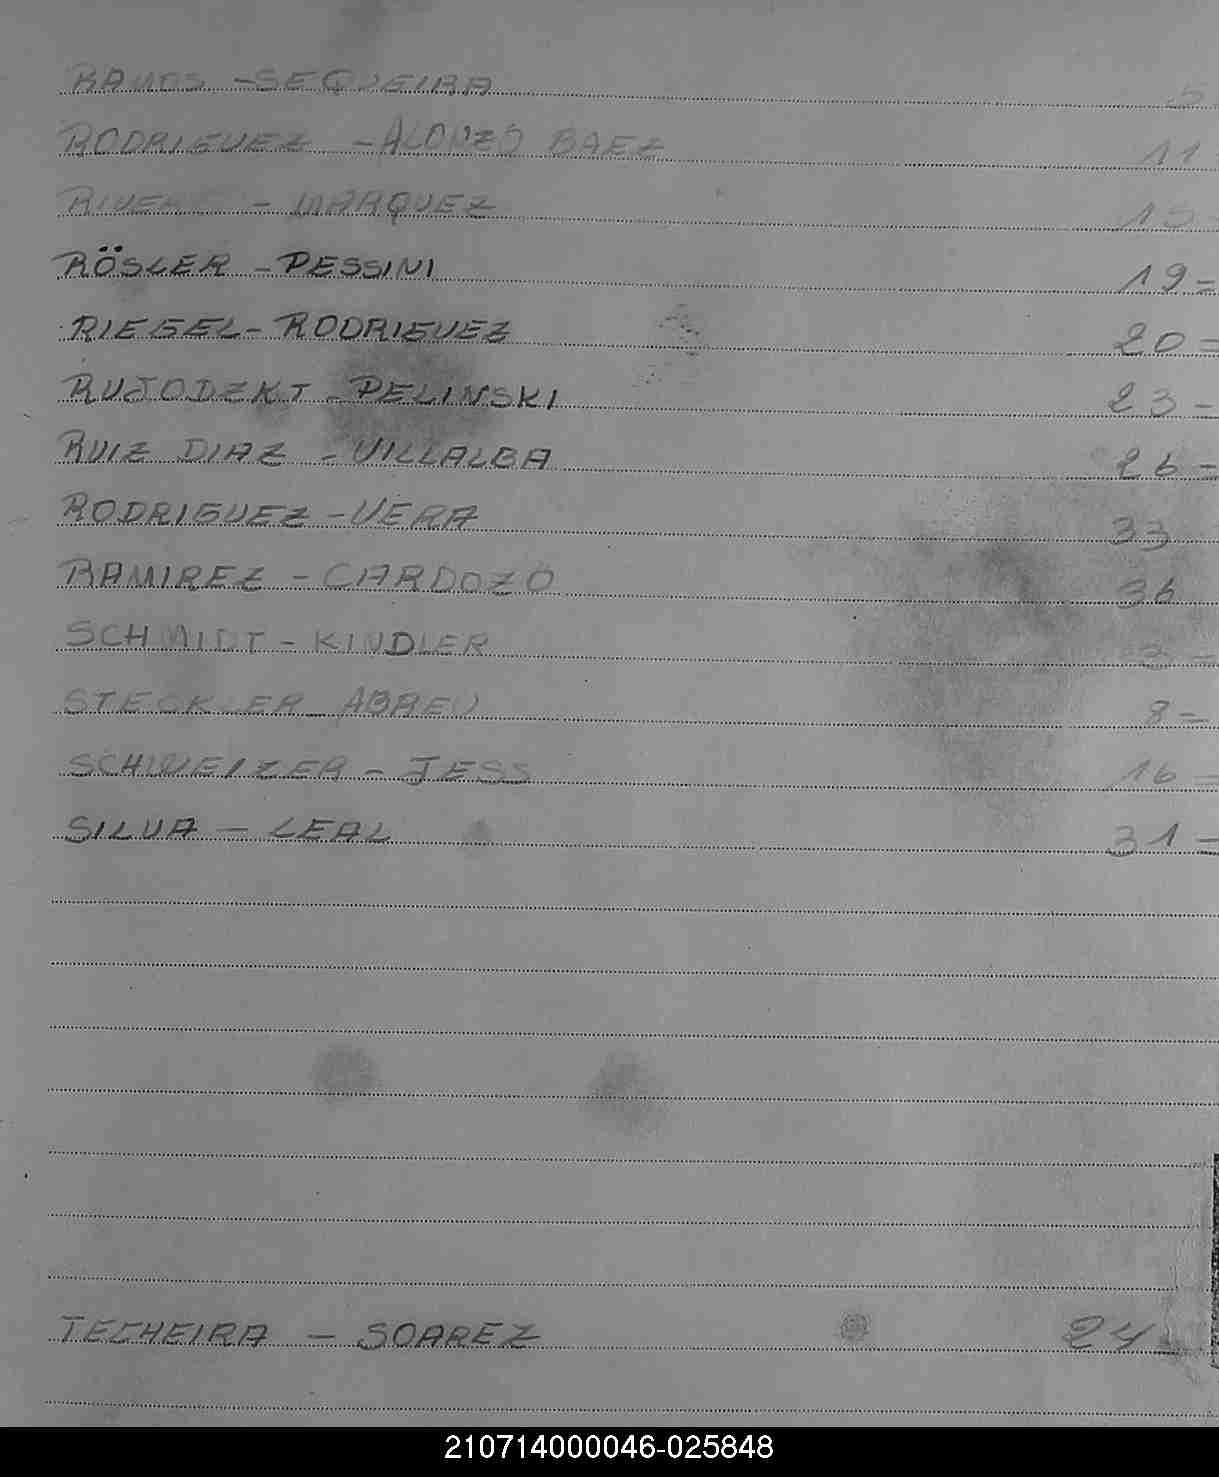 RAMOS - SEQUEIRA 5
RODRIGUEZ - ALONZO BAEZ 11
- MARQUEZ 15
RÖSLER - PESSINI 19 =
RIEGEL - RODRIGUEZ 20 =
- PELINSKI 23 -
RUIZ DIAZ - VILLALBA 26 =
RODRIGUEZ - VERA 33
RAMIREZ - CARDOZO 36
SCHMIDT - KINDLER 3 -
STECKLER - ABREU 8 =
SCHWEIZER - JESS 16 =
SILVA - LEAL 31 -
TECHEIRA - SOAREZ 24
210714000046-025848